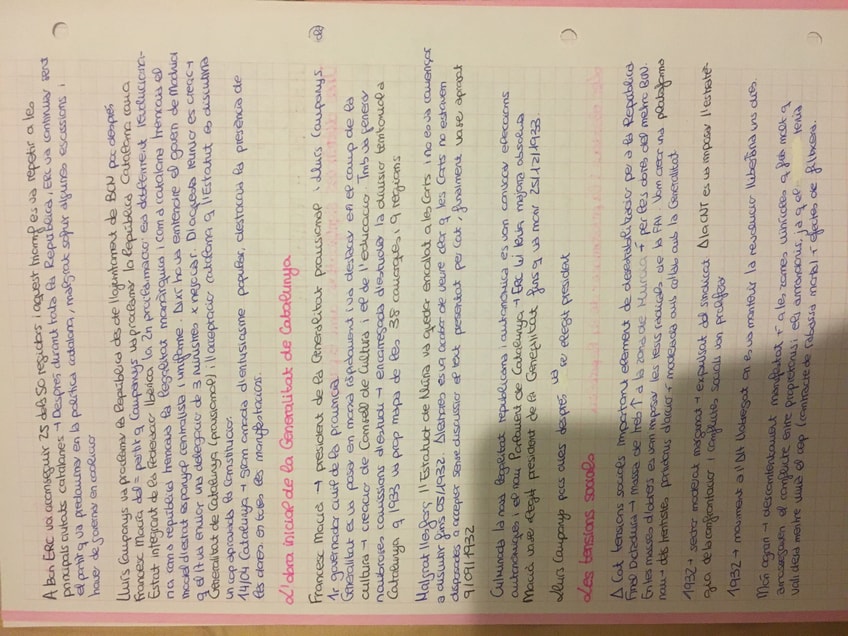 A Bcn ERC va aconseguir 25 dels 50 regidors i aquest triomf es va repetir a les
principals ciutats catalanes → Després durant tota la República, ERC va continuar sent
el partit q va predominar en la política catalana, malgrat sofrir algunes escissions i
haver de governar en coalició
Lluís Companys va proclamar la República des de l'ajuntament de BCN poc després
Francesc Macià, del = partit q Companys va proclamar la República Catalana com a
Estat integrant de la Federació Ibèrica. La 2n proclamació era doblement revolucionà-
ria com a república trencava la legalitat monàrquica i com a catalana trencava el
model d'estat espanyol centralista i uniforme. Així ho va entendre el govern de Madrid
q el 17 va enviar una delegació de 3 ministres x negociar. D'aquesta reunió es creà →
Generalitat de Catalunya (provisional) i l'acceptació catalana q l'Estatut es discutiria
un cop aprovada la Constitució.
14/04 Catalunya → gran onada d'entusiasme popular, destacava la presència de
les dones en totes les manifestacions.
L'obra inicial de la Generalitat de Catalunya
Francesc Macià → president de la Generalitat provisional i Lluís Companys,
1r governador civil de la província
Generalitat es va posar en marxa ràpidament i va destacar en el camp de la
cultura → creació de Consell de Cultura i el de l'educació. Tmb va generar
nombroses comissions d'estudi → encarregada d'estudiar la divisió territorial a
Catalunya q 1933 va prop mapa de les 38 comarques i 9 regions
Malgrat l'esforç l'Estatut de Núria va quedar encallat a les Corts i no es va començar
a discutir fins 05/1932. Aleshores es va acabar de veure clar q les Corts no estaven
disposades a acceptar sense discussió el text presentat per Cat, finalment va se aprovat
9/09/1932
Culminada la nova legalitat republicana i autonòmica es van convocar eleccions
autonòmiques i el nou Parlament de Catalunya → ERC hi tenia majoria absoluta
Macià va se elegit president de la Generalitat fins q va morir 25/12/1933.
Lluís Companys pocs dies després va se elegit president
Les tensions socials
A Cat tensions socials important element de desestabilització per a la República
Final Dictadura → Massa de treb ↑ a la zona de Murcia → per les obres del metro BCN.
En les masses d'obrers es van imposar les tesis radicals de la FAI. Van crear una plataforma
nau → dels trentistes partidaris d'acció + moderada amb col·lab amb la Generalitat
1932 → sector moderat marginat → expulsat del sindicat. A la CNT es va imposar l'estratè-
gia de la confrontació i conflictes socials van proliferar
1932 → moviment a l'Alt Llobregat on es va mantenir la revolució llibertària uns dies.
Món agrari → descontentament manifestat → a les zones vinícoles q fins molt q
aconseguien el conflicte entre propietaris i els arrendataris, ja q el tenia
validesa mentre visqui el cep (contracte de rabassa morta) → efectes de fil·loxera.